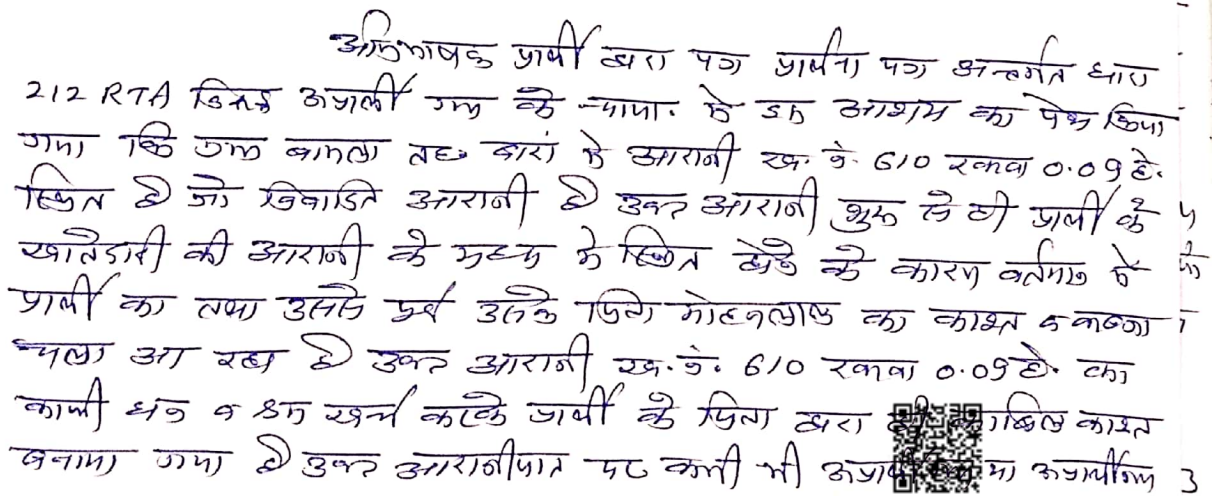 अभिभाषक प्रार्थी द्वारा पत्र प्रार्थना पत्र अन्तर्गत धारा
212 RTA विरुद्ध अप्रार्थी गण के न्याया. में इस आशय का पेश किया
गया कि ग्राम बामला तह. बारां में आराजी ख. नं. 610 रकबा 0.09 हे.
स्थित है जो विवादित आराजी है उक्त आराजी शुरू से ही प्रार्थी के
खातेदारी की आराजी के मध्य में स्थित होने के कारण वर्तमान में
प्रार्थी का तथा उससे पूर्व उसके पिता मोहनलाल का काश्त व कब्जा
चला आ रहा है उक्त आराजी ख. नं. 610 रकबा 0.09 हे. का
काफी धन व श्रम खर्च करके प्रार्थी के पिता द्वारा ही काबिल काश्त
बनाया गया है उक्त आराजीयात पर कभी भी या अप्रार्थीगण